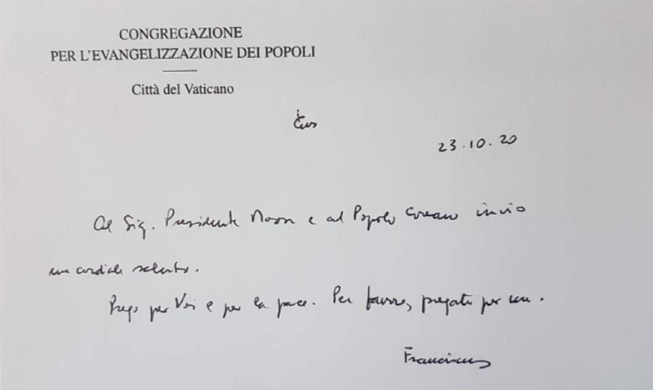 CONGREGAZIONE
PER L'EVANGELIZZAZIONE DEI POPOLI
Città del Vaticano
23.10.20
Al Sig. Presidente Moon e al Popolo Coreano invio
un cordiale saluto.
Prego per Voi e per la pace. Per favore, pregate per me.
Franciscus